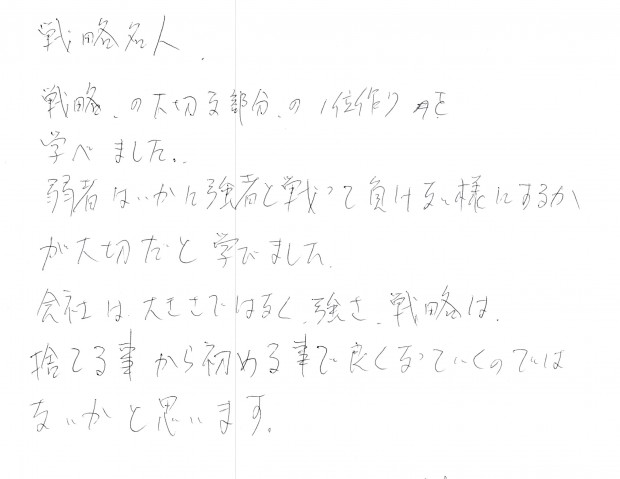 戦略名人
戦略、の大切な部分、の1位作りを
学べました。
弱者はいかに強者と戦って負けない様にするか
が大切だと学びました。
会社は大きさではなく、強さ、戦略は、
捨てる事から初める事で良くなっていくのでは
ないかと思います。